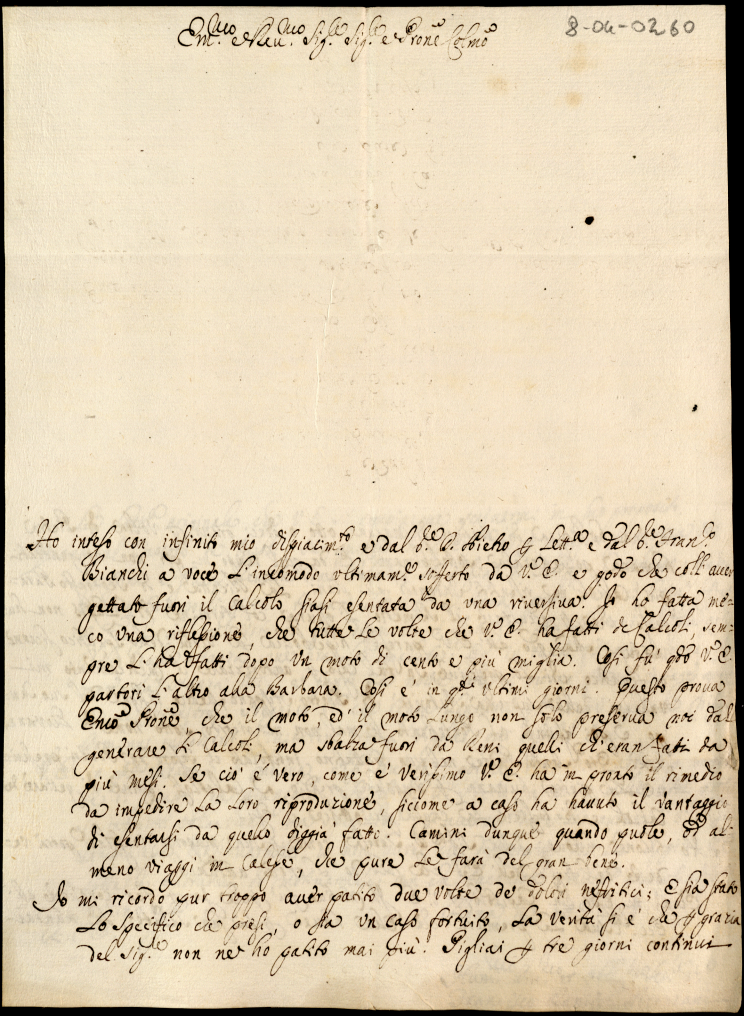 8-04-0260
Em.mo e Reu.mo Sig.re Sig.re e Prone Colmo
Ho inteso con infinito mio dispiacim.to e dal S.r C. Pietro p Lett.a e dal S.r Fran.co
Bianchi a voce l'incomodo vltimam.te sofferto da V.a E. e godo che coll'auer
gettato fuori il Calcolo siasi esentata da vna riuersiua. Io ho fatta me=
co vna riflessione, che tutte le volte che V.a E. ha fatti de Calcoli, sem=
pre l'ha fatti dopo vn moto di cento e più miglia. Così fù qdo V.a E.
partorì l'altro alla Barbara. Così è in q.ti vltimi giorni. Questo proua
Emo Prone, che il moto, ed il moto lungo non solo preserua noi dal
generare li Calcoli, ma sbalza fuori da Reni quelli ch'eran fatti da
più mesi. Se ciò è vero, come è verissimo V.a E. ha in pronto il rimedio
da impedire la loro riproduzione, siccome a caso ha hauuto il vantaggio
di esentarsi da quello diggià fatto. Camini dunque quando puole, od al=
meno viaggi in Calesse, che pure le farà del gran bene.
Io mi ricordo pur troppo auer patito due volte de dolori nefritici; E sia stato
lo specifico che presi, o sia vn caso fortuito, la verità si è che p grazia
del Sig.re non ne ho patito mai più. Pigliai p tre giorni continui